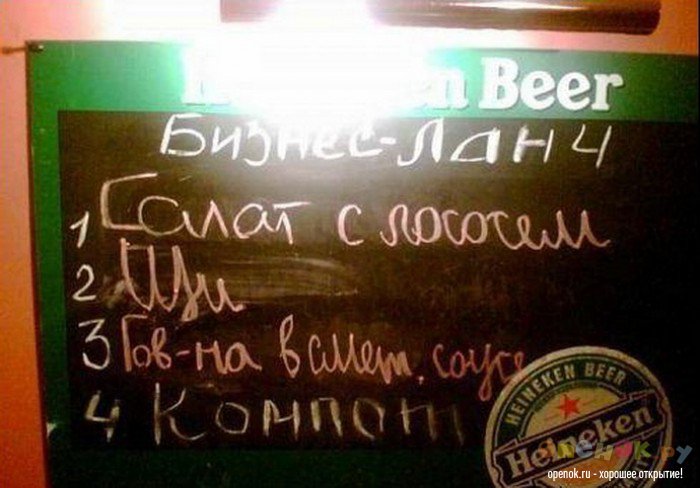 Heineken Beer
Бизнес-Ланч
1 Салат с лососем
2 Щи
3 Гов-на в смет. соусе
4 Компот
HEINEKEN BEER
Heineken
openok.ru - хорошее открытие!